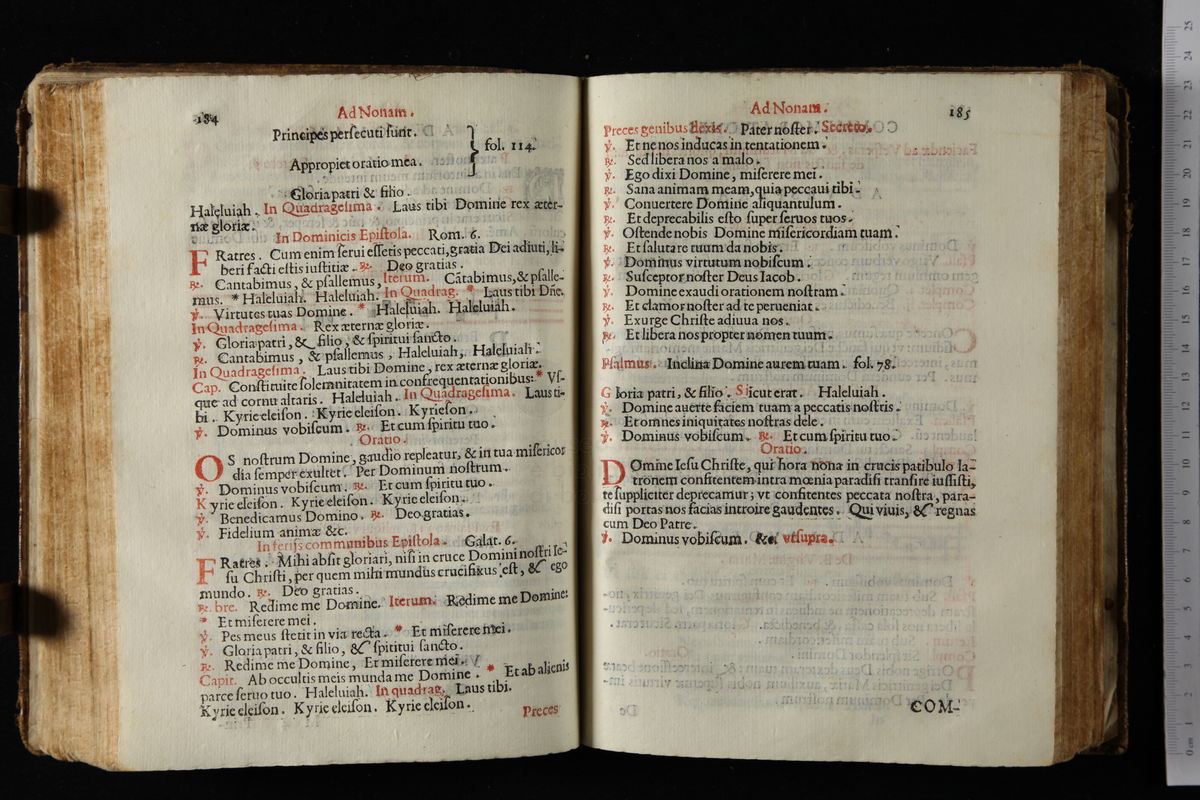 184
Ad Nonam.
Principes persecuti sunt.
fol. 114.
Appropiet oratio mea.
Gloria patri & filio.
Haleluiah. In Quadragesima. Laus tibi Domine rex æter-
næ gloriæ.
In Dominicis Epistola. Rom. 6.
FRatres. Cum enim serui essetis peccati, gratia Dei adiuti, li-
beri facti estis iustitiæ. ℟. Deo gratias.
℟. Cantabimus, & psallemus, Iterum. Cātabimus, & psalle-
mus. * Haleluiah. Haleluiah. In Quadrag. * Laus tibi Dñe.
℣. Virtutes tuas Domine. * Haleluiah. Haleluiah.
In Quadragesima. Rex æternæ gloriæ.
℣. Gloria patri, & filio, & spiritui sancto.
℟. Cantabimus, & psallemus, Haleluiah, Haleluiah.
In Quadragesima. Laus tibi Domine, rex æternæ gloriæ.
Cap. Constituite solemnitatem in confrequentationibus: * Vs-
que ad cornu altaris. Haleluiah. In Quadragesima. Laus ti-
bi. Kyrie eleison. Kyrie eleison. Kyrieson.
℣. Dominus vobiscum. ℟. Et cum spiritu tuo.
Oratio.
OS nostrum Domine, gaudio repleatur, & in tua misericor
dia semper exultet. Per Dominum nostrum.
℣. Dominus vobiscum. ℟. Et cum spiritu tuo.
Kyrie eleison. Kyrie eleison. Kyrie eleison.
℣. Benedicamus Domino. ℟. Deo gratias.
℣. Fidelium animæ &c.
In ferijs communibus Epistola. Galat. 6.
FRatres. Mihi absit gloriari, nisi in cruce Domini nostri Ie-
su Christi, per quem mihi mundus crucifixus est, & ego
mundo. ℟. Deo gratias.
℟. bre. Redime me Domine. Iterum. Redime me Domine:
* Et miserere mei.
℣. Pes meus stetit in via recta. * Et miserere mei.
℣. Gloria patri, & filio, & spititui sancto.
℟. Redime me Domine, Et miserere mei.
Capit. Ab occultis meis munda me Domine. * Et ab alienis
parce seruo tuo. Haleluiah. In quadrag. Laus tibi.
Kyrie eleison. Kyrie eleison. Kyrie eleison.
Preces
Ad Nonam.
185
Preces genibus flexis. Pater noster. Secreto.
℣. Et ne nos inducas in tentationem.
℟. Sed libera nos a malo.
℣. Ego dixi Domine, miserere mei.
℟. Sana animam meam, quia peccaui tibi.
℣. Conuertere Domine aliquantulum.
℟. Et deprecabilis esto super seruos tuos.
℣. Ostende nobis Domine misericordiam tuam.
℟. Et salutare tuum da nobis.
℣. Dominus virtutum nobiscum.
℟. Susceptor noster Deus Iacob.
℣. Domine exaudi orationem nostram.
℟. Et clamor noster ad te perueniat.
℣. Exurge Christe adiuua nos.
℟. Et libera nos propter nomen tuum.
Psalmus. Inclina Domine aurem tuam. fol. 78.
Gloria patri, & filio. Sicut erat. Haleluiah.
℣. Domine auerte faciem tuam a peccatis nostris.
℟. Et omnes iniquitates nostras dele.
℣. Dominus vobiscum. ℟. Et cum spiritu tuo.
Oratio.
DOmine Iesu Christe, qui hora nona in crucis patibulo la-
tronem confitentem intra mœnia paradisi transire iussisti,
te suppliciter deprecamur; vt confitentes peccata nostra, para-
disi portas nos facias introire gaudentes. Qui viuis, & regnas
cum Deo Patre.
℣. Dominus vobiscum. &c. vt supra.
COM-